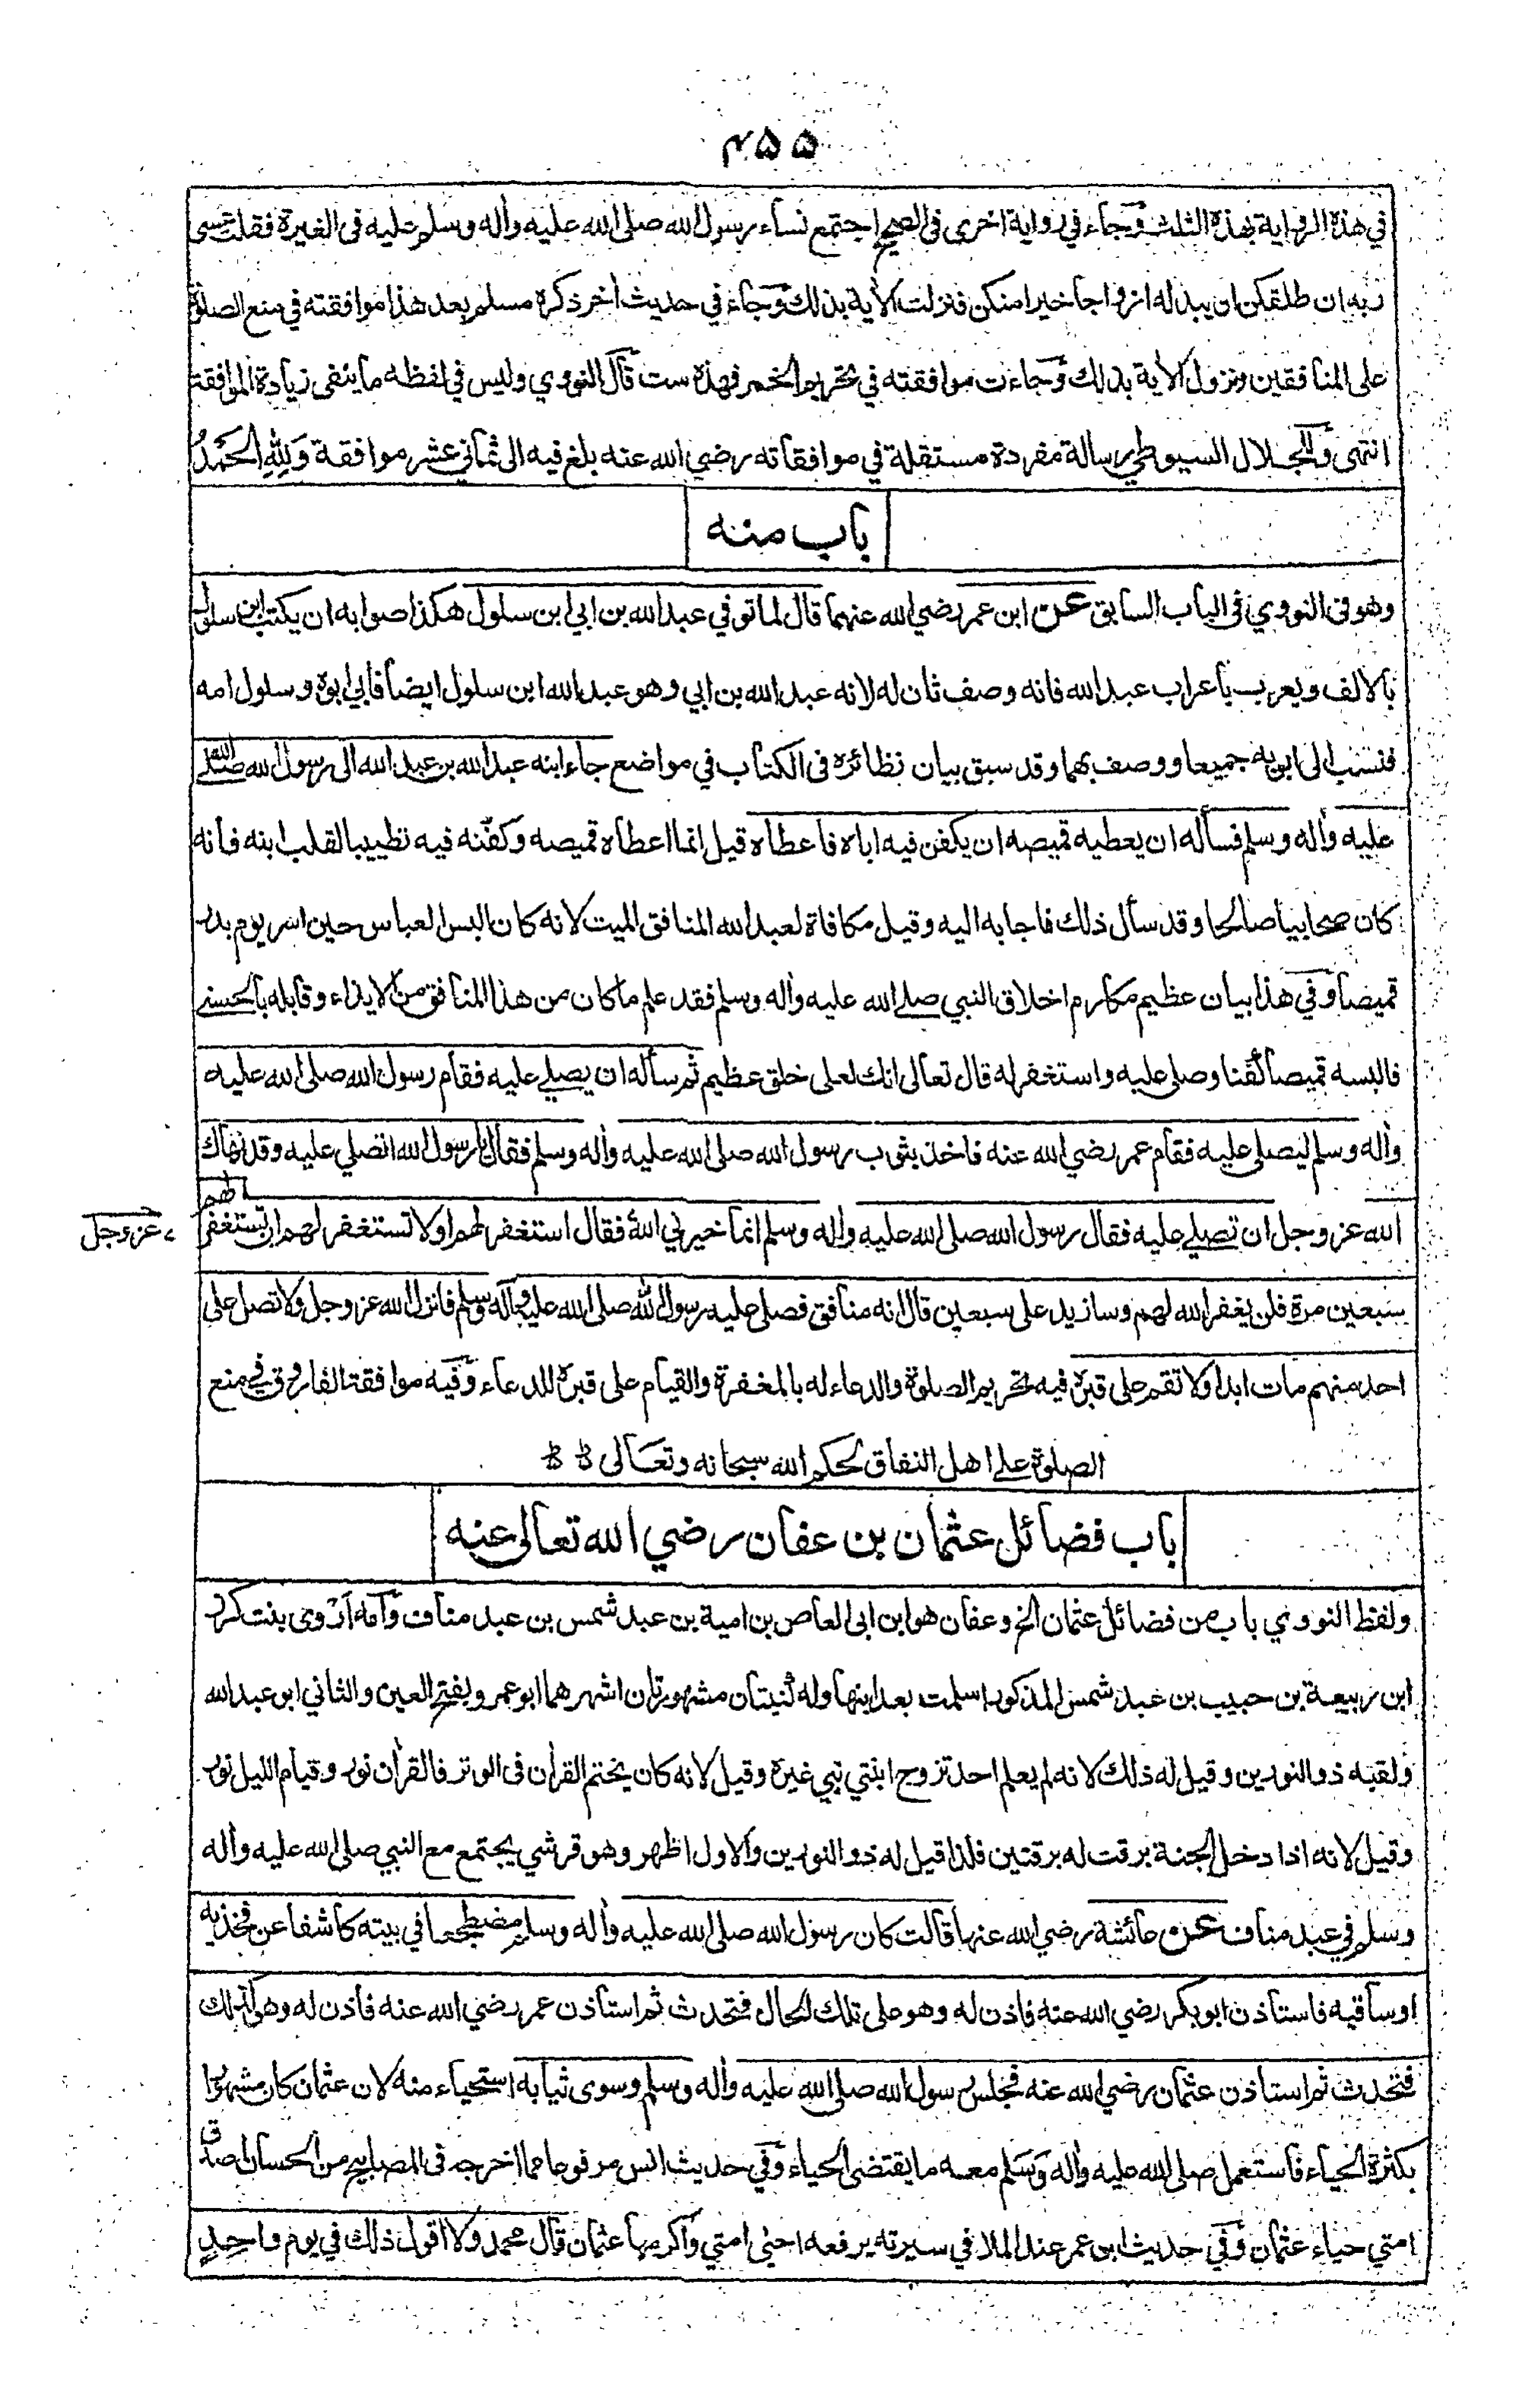 ۴۵۵
في هذه الرواية بهذه الثلث وجاء في رواية اخرى فى الصحيح اجتمع نساء رسول الله صلى الله عليه واٰله وسلم عليه فى الغيرة فقلت عسى
ربه ان طلقكن ان يبدله ازواجا خيرا منكن فنزلت الأية بذلك وجاء في حديث اخر ذكره مسلم بعد هذا موافقته في منع الصلوة
على المنافقين ونزول الأية بذلك وجاءت موافقته في تحريم الخمر فهذه ست قال النووي وليس في لفظه ما ينفى زيادة الموافقة
انتهى وللجلال السيوطي رسالة مفردة مستقلة في موافقاته رضي الله عنه بلغ فيه الى ثماني عشر موافقة وَلِلّٰهِ الْحَمْدُ
باب منه
وهو فى النووي فى الباب السابق عن ابن عمر رضي الله عنهما قال لما توفي عبد الله بن ابي ابن سلول هكذا صوابه ان يكتب ابن سلول
بالالف ويعرب باعراب عبد الله فانه وصف ثان له لانه عبد الله بن ابي وهو عبد الله ابن سلول ايضا فابي ابوه وسلول امه
فنسب الى ابويه جميعا ووصف بهما وقد سبق بيان نظائره فى الكتاب في مواضع جاء ابنه عبد الله بن عبد الله الى رسول الله صلى الله
عليه واٰله وسلم فسأله ان يعطيه قميصه ان يكفن فيه اباه فاعطاه قيل انما اعطاه قميصه وكفّنه فيه تطييبا لقلب ابنه فانه
كان صحابيا صالحا وقد سأل ذلك فاجابه اليه وقيل مكافاة لعبد الله المنافق الميت لانه كان البس العباس حين اسر يوم بدر
قميصا وفي هذا بيان عظيم مكارم اخلاق النبي صلى الله عليه واٰله وسلم فقد علم ما كان من هذا المنافق من الايذاء وقابله بالحسنى
فالبسه قميصا كفنا وصلى عليه واستغفر له قال تعالى انك لعلى خلق عظيم ثم سأله ان يصلي عليه فقام رسول الله صلى الله عليه
واٰله وسلم ليصلى عليه فقام عمر رضي الله عنه فاخذ بثوب رسول الله صلى الله عليه واٰله وسلم فقال يا رسول الله اتصلي عليه وقد نهاك
الله عز وجل ان تصلي عليه فقال رسول الله صلى الله عليه واٰله وسلم انما خيرني الله فقال استغفر لهم اولا تستغفر لهم ان تستغفر لهم
عز وجل
سبعين مرة فلن يغفر الله لهم وسازيد على سبعين قال انه منافق فصلى عليه رسول الله صلى الله عليه واٰله وسلم فانزل الله عز وجل ولا تصل على
احد منهم مات ابدا ولا تقم على قبره فيه تحريم الصلوة والدعاء له بالمغفرة والقيام على قبره للدعاء وفيه موافقة الفاروق في منع
الصلوة على اهل النفاق لحكم الله سبحانه وتعالى
باب فضائل عثمان بن عفان رضي الله تعالى عنه
ولفظ النووي باب من فضائل عثمان الخ وعفان هو ابن ابى العاص بن امية بن عبد شمس بن عبد مناف وامه اَرْوى بنت كرز
ابن ربيعة بن حبيب بن عبد شمس المذكور اسلمت بعد ابنها وله كنيتان مشهورتان اشهرهما ابو عمرو بفتح العين والثاني ابو عبد الله
ولقبه ذو النورين وقيل له ذلك لانه لم يعلم احد تزوج ابنتي نبي غيره وقيل لانه كان يختم القراٰن فى الوتر فالقراٰن نور وقيام الليل نور
وقيل لانه اذا دخل الجنة برقت له برقتين فلذا قيل له ذو النورين والاول اظهر وهو قرشي يجتمع مع النبي صلى الله عليه واٰله
وسلم في عبد مناف عن عائشة رضي الله عنها قالت كان رسول الله صلى الله عليه واٰله وسلم مضطجعا في بيته كاشفا عن فخذيه
او ساقيه فاستأذن ابو بكر رضي الله عنه فاذن له وهو على تلك الحال فتحدث ثم استأذن عمر رضي الله عنه فأذن له وهو كذلك
فتحدث ثم استأذن عثمان رضي الله عنه فجلس رسول الله صلى الله عليه واٰله وسلم وسوى ثيابه استحياء منه لان عثمان كان مشهورا
بكثرة الحياء فاستعمل صلى الله عليه واٰله وَسَلم معه ما يقتضى الحياء وفي حديث انس مرفوعا مما اخرجه فى المصابيح من الحسان اصدق
امتي حياء عثمان وفي حديث ابن عمر عند الملا في سيرته يرفعه احيى امتي واكرمها عثمان قال محمد ولا اقول ذلك في يوم واحِدٍ